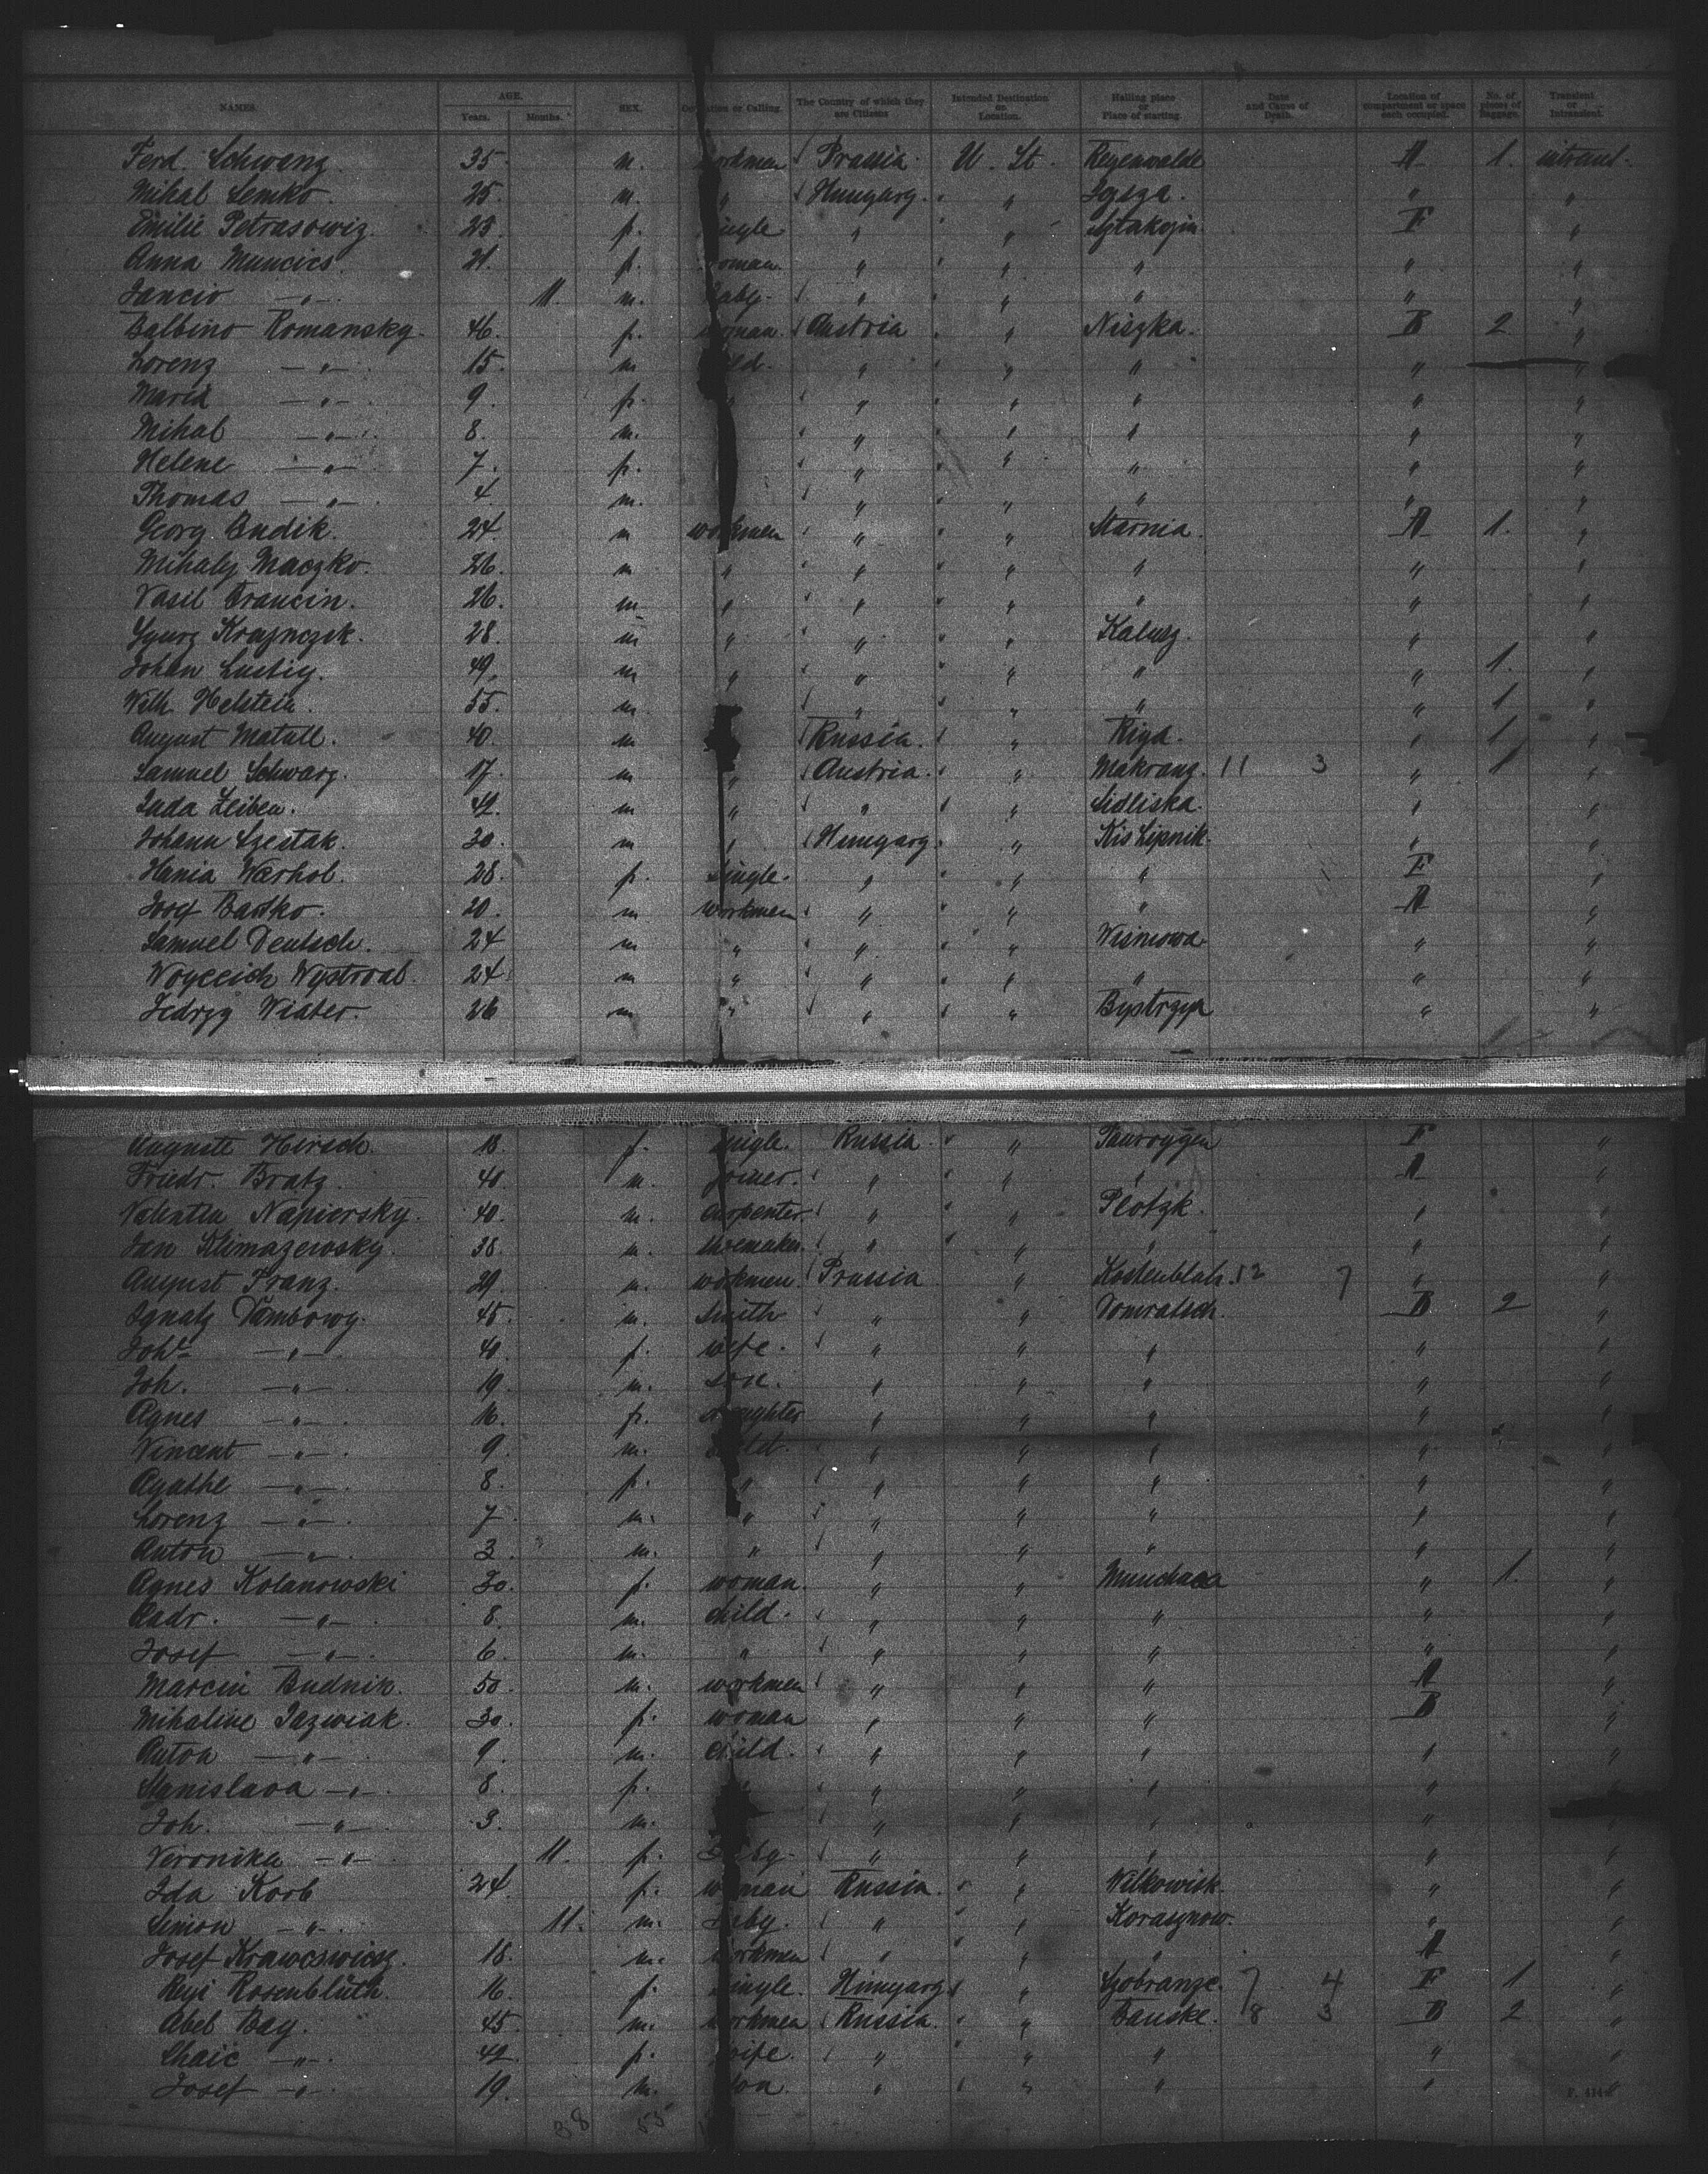 NAMES. AGE. Years. Months. SEX. Occupation or Calling. The Country of which they are Citizens Intended Destination or Location. Hailing place or Place of starting. Date and Cause of Death. Location of compartment or space each occupied. No. of pieces of Baggage. Transient or Intransient.
Ferd. Schwenz 35 m. workmen Prussia U. St. Regenwalde A 1. intransl.
Mihal Lemko. 25. m. " Hungary. " " "
Emilie Petrasowiz. 23. f. single " " Sztakozin F "
Anna Muncics. 21. f. woman. " " " " "
Jancio —"— 11. m. baby. " " " " "
Balbino Romansky. 46. f. woman. Austria " Niszka. B 2 "
Lorenz —"— 15. m child. " " " " "
Maria —"— 9. f. " " " " " "
Mihal —"— 8. m. " " " " "
Helene —"— 7. f. " " " " "
Thomas —"— 4 m. " " " " "
Georg Budik. 24. m workmen " " Starnia. A 1. "
Mihaly Maczko. 26. m " " " " " "
Vasil Francin. 26. m " " " " " "
Gyurg Kraynczik. 28. m " " " Kalusz. " "
Johan Lustig. 49. m " " " " " 1. "
Wilh. Helstein. 55. m. " " " " 1 "
August Matull. 40. m Russia. " Riga. " 1 "
Samuel Schwarz. 17. m " Austria. " Makranz. 11 3 " 1 "
Juda Leiben. 42. m " " " Sidliska. " "
Johann Szestak. 30. m " Hungary. " Kis Lipnik. " "
Hania Warhol. 28. f. single. " " " F "
Josef Batsko. 20. m workmen " " " A "
Samuel Deutsch. 24 m " " " Wisniowa. " "
Woyceich Wystroal. 24. m " " " " " "
Jedrzy Wiater. 26 m " " " Bystrzya " "
Auguste Hirsch. 18. f. single. Russia. " Tauroggen F "
Friedr. Bratz. 40. m. joiner. " " " A "
Valentin Napiersky. 40. m. carpenter. " " Plotzk. " "
Jan Klimazewsky. 38. m. shoemaker. " " " " "
August Franz. 29. m. workmen. Prussia " Kostenblatt. 12 7 " "
Ignatz Dambowy. 45. m. smith " " Domratsch. B 2 "
Joh. —"— 40. f. wife. " " " " "
Joh. —"— 19. m. son. " " " " "
Agnes —"— 16. f. daughter " " " " "
Vincent —"— 9. m. child. " " " " "
Agathe —"— 8. f. " " " " " "
Lorenz —"— 7 m. " " " " " "
Anton —"— 3. m. " " " " " "
Agnes Kolanowski 30. f. woman. " " " 1. "
Andr. —"— 8. m. child. " " " " "
Josef —"— 6. m. " " " " " "
Marcin Budnik. 50. m. workmen " " " A "
Mihaline Jazwiak. 30. f. woman " " " B "
Anton —"— 9. m. child. " " " " "
Stanislava —"— 8. f. " " " " "
Joh. —"— 3. m. " " " " "
Veronika —"— 11. f. baby. " " " " "
Ida Korb 24. f. woman Russia. " Wilkowisk. " "
Simon —"— 11. m. baby. " " Korasznow. " "
Josef Krawcswicsz. 18. m. workmen " " " A "
Resi Rosenblüth. 16. f. single. Hungary " Szobranze. 7 4 F 1 "
Abel Bay. 45. m. workmen Russia. " Bauske. 8 3 B 2 "
Chaie —"— 42. f. wife. " " " " "
Josef —"— 19. m. son. " " " " "
38 55